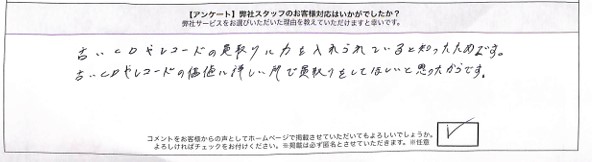 【アンケート】弊社スタッフのお客様対応はいかがでしたか？
弊社サービスをお選びいただいた理由を教えていただけますと幸いです。
古いCDやレコードの買取りに力を入れられていると知ったためです。
古いCDやレコードの価値に詳しい所で買取りをしてほしいと思ったからです。
コメントをお客様からの声としてホームページで掲載させていただいてもよろしいでしょうか。
よろしければチェックをお付けください。※掲載は必ず匿名とさせていただきます。※任意